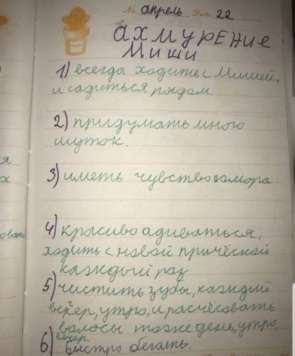 № апрель День 22
АХМУРЕНИЕ
МИШИ
1) всегда ходить с Мишей,
и садиться рядом.
2) придумать много
шуток.
3) иметь чувство юмора
4) красиво адиваться,
ходить с новой причёской
каждый раз
5) чистить зубы, каждый
вечер, утро, и расчёсовать
волосы тоже день, утро,
вечер.
6) быстро бегать.
я
х